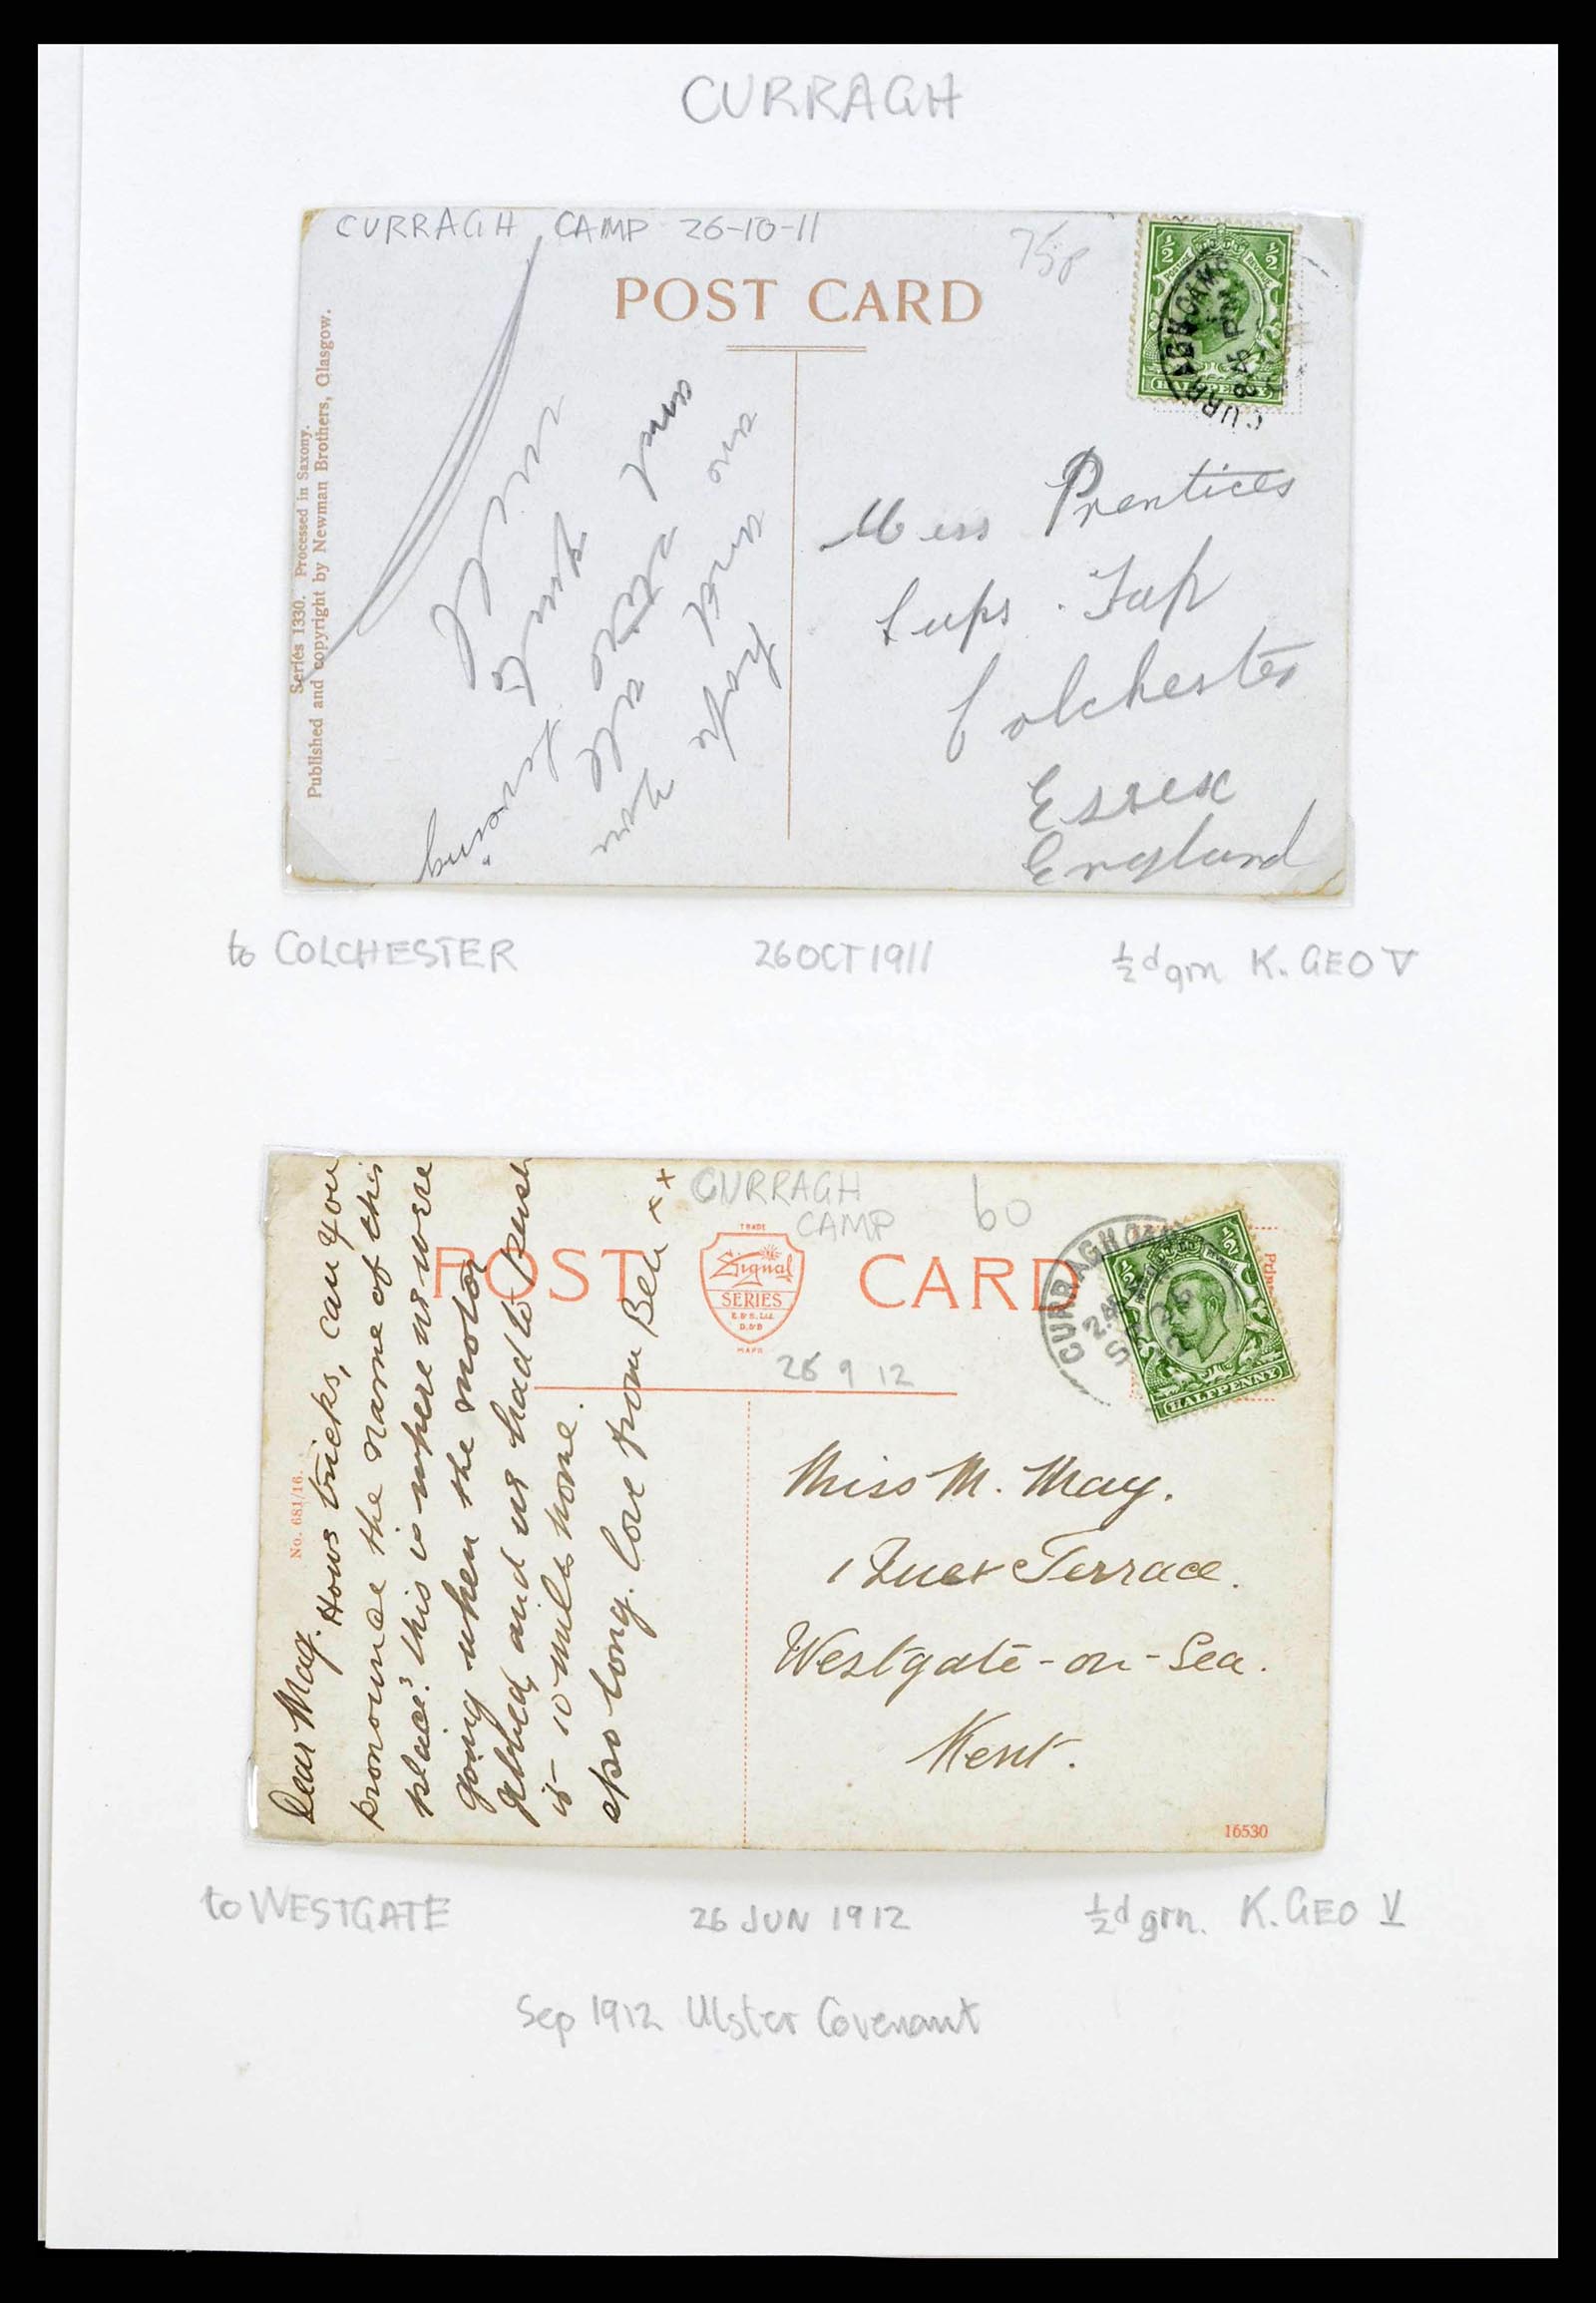 CURRAGH
CURRAGH CAMP 26-10-11
75p
POST CARD
½ ½
POSTAGE REVENUE
HALFPENNY
CURRAGH CAMP
8.45 PM
Series 1330. Processed in Saxony.
Published and copyright by Newman Brothers, Glasgow.
and
all
hope you
Prentices
Colchester
Essex
England
to COLCHESTER 26 OCT 1911 ½d grn K. GEO V
CURRAGH
CAMP
60
POST CARD
TRADE
Signal
SERIES
E. & S. Ltd.
D. & B
MARK
26 9 12
CURRAGH CAMP
½ ½
HALFPENNY
No. 681/16.
Dear May.
Hows tricks, can you
pronounce the name of this
place? this is where we were
going when the motor
and we had to push
it 10 miles home.
so long. love from Bell x x
Miss M. May.
1 Terrace.
Westgate-on-Sea.
Kent.
16530
to WESTGATE 26 JUN 1912 ½d grn. K. GEO V
Sep 1912 Ulster Covenant